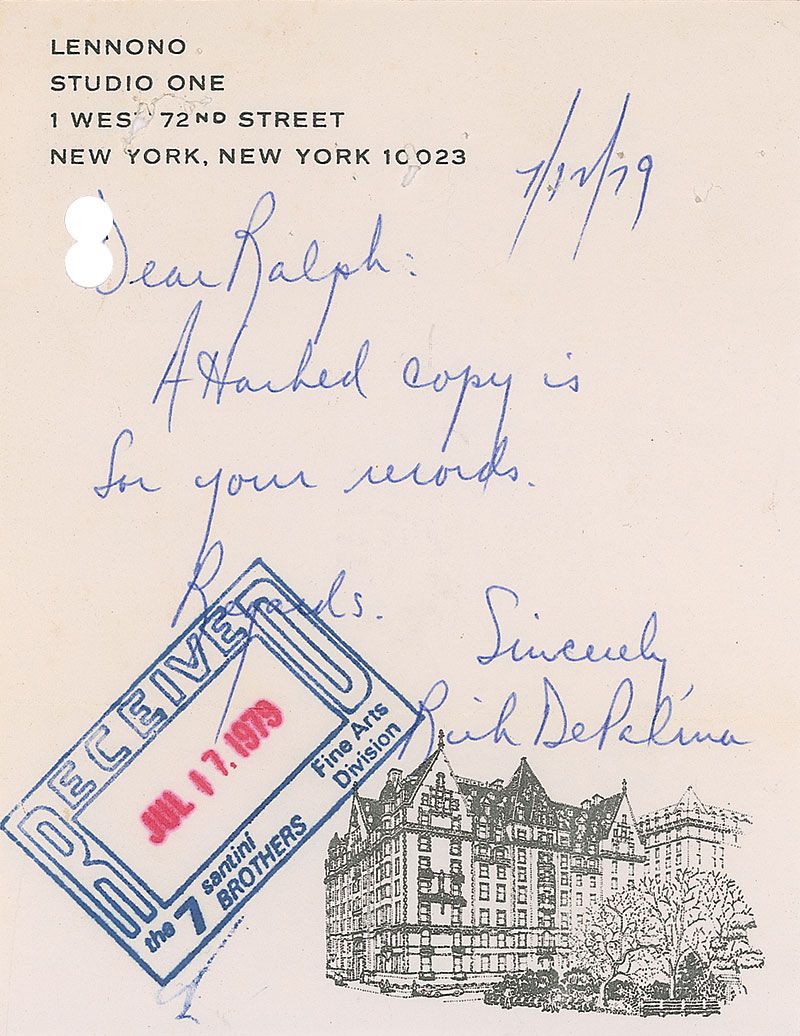 LENNONO
STUDIO ONE
1 WEST 72ND STREET
NEW YORK, NEW YORK 10023
7/12/79
Dear Ralph:
Attached copy is
for your records.
Regards.
Sincerely,
Rich DePalma
RECEIVED
JUL 17. 1979
Fine Arts
Division
the 7 santini
BROTHERS